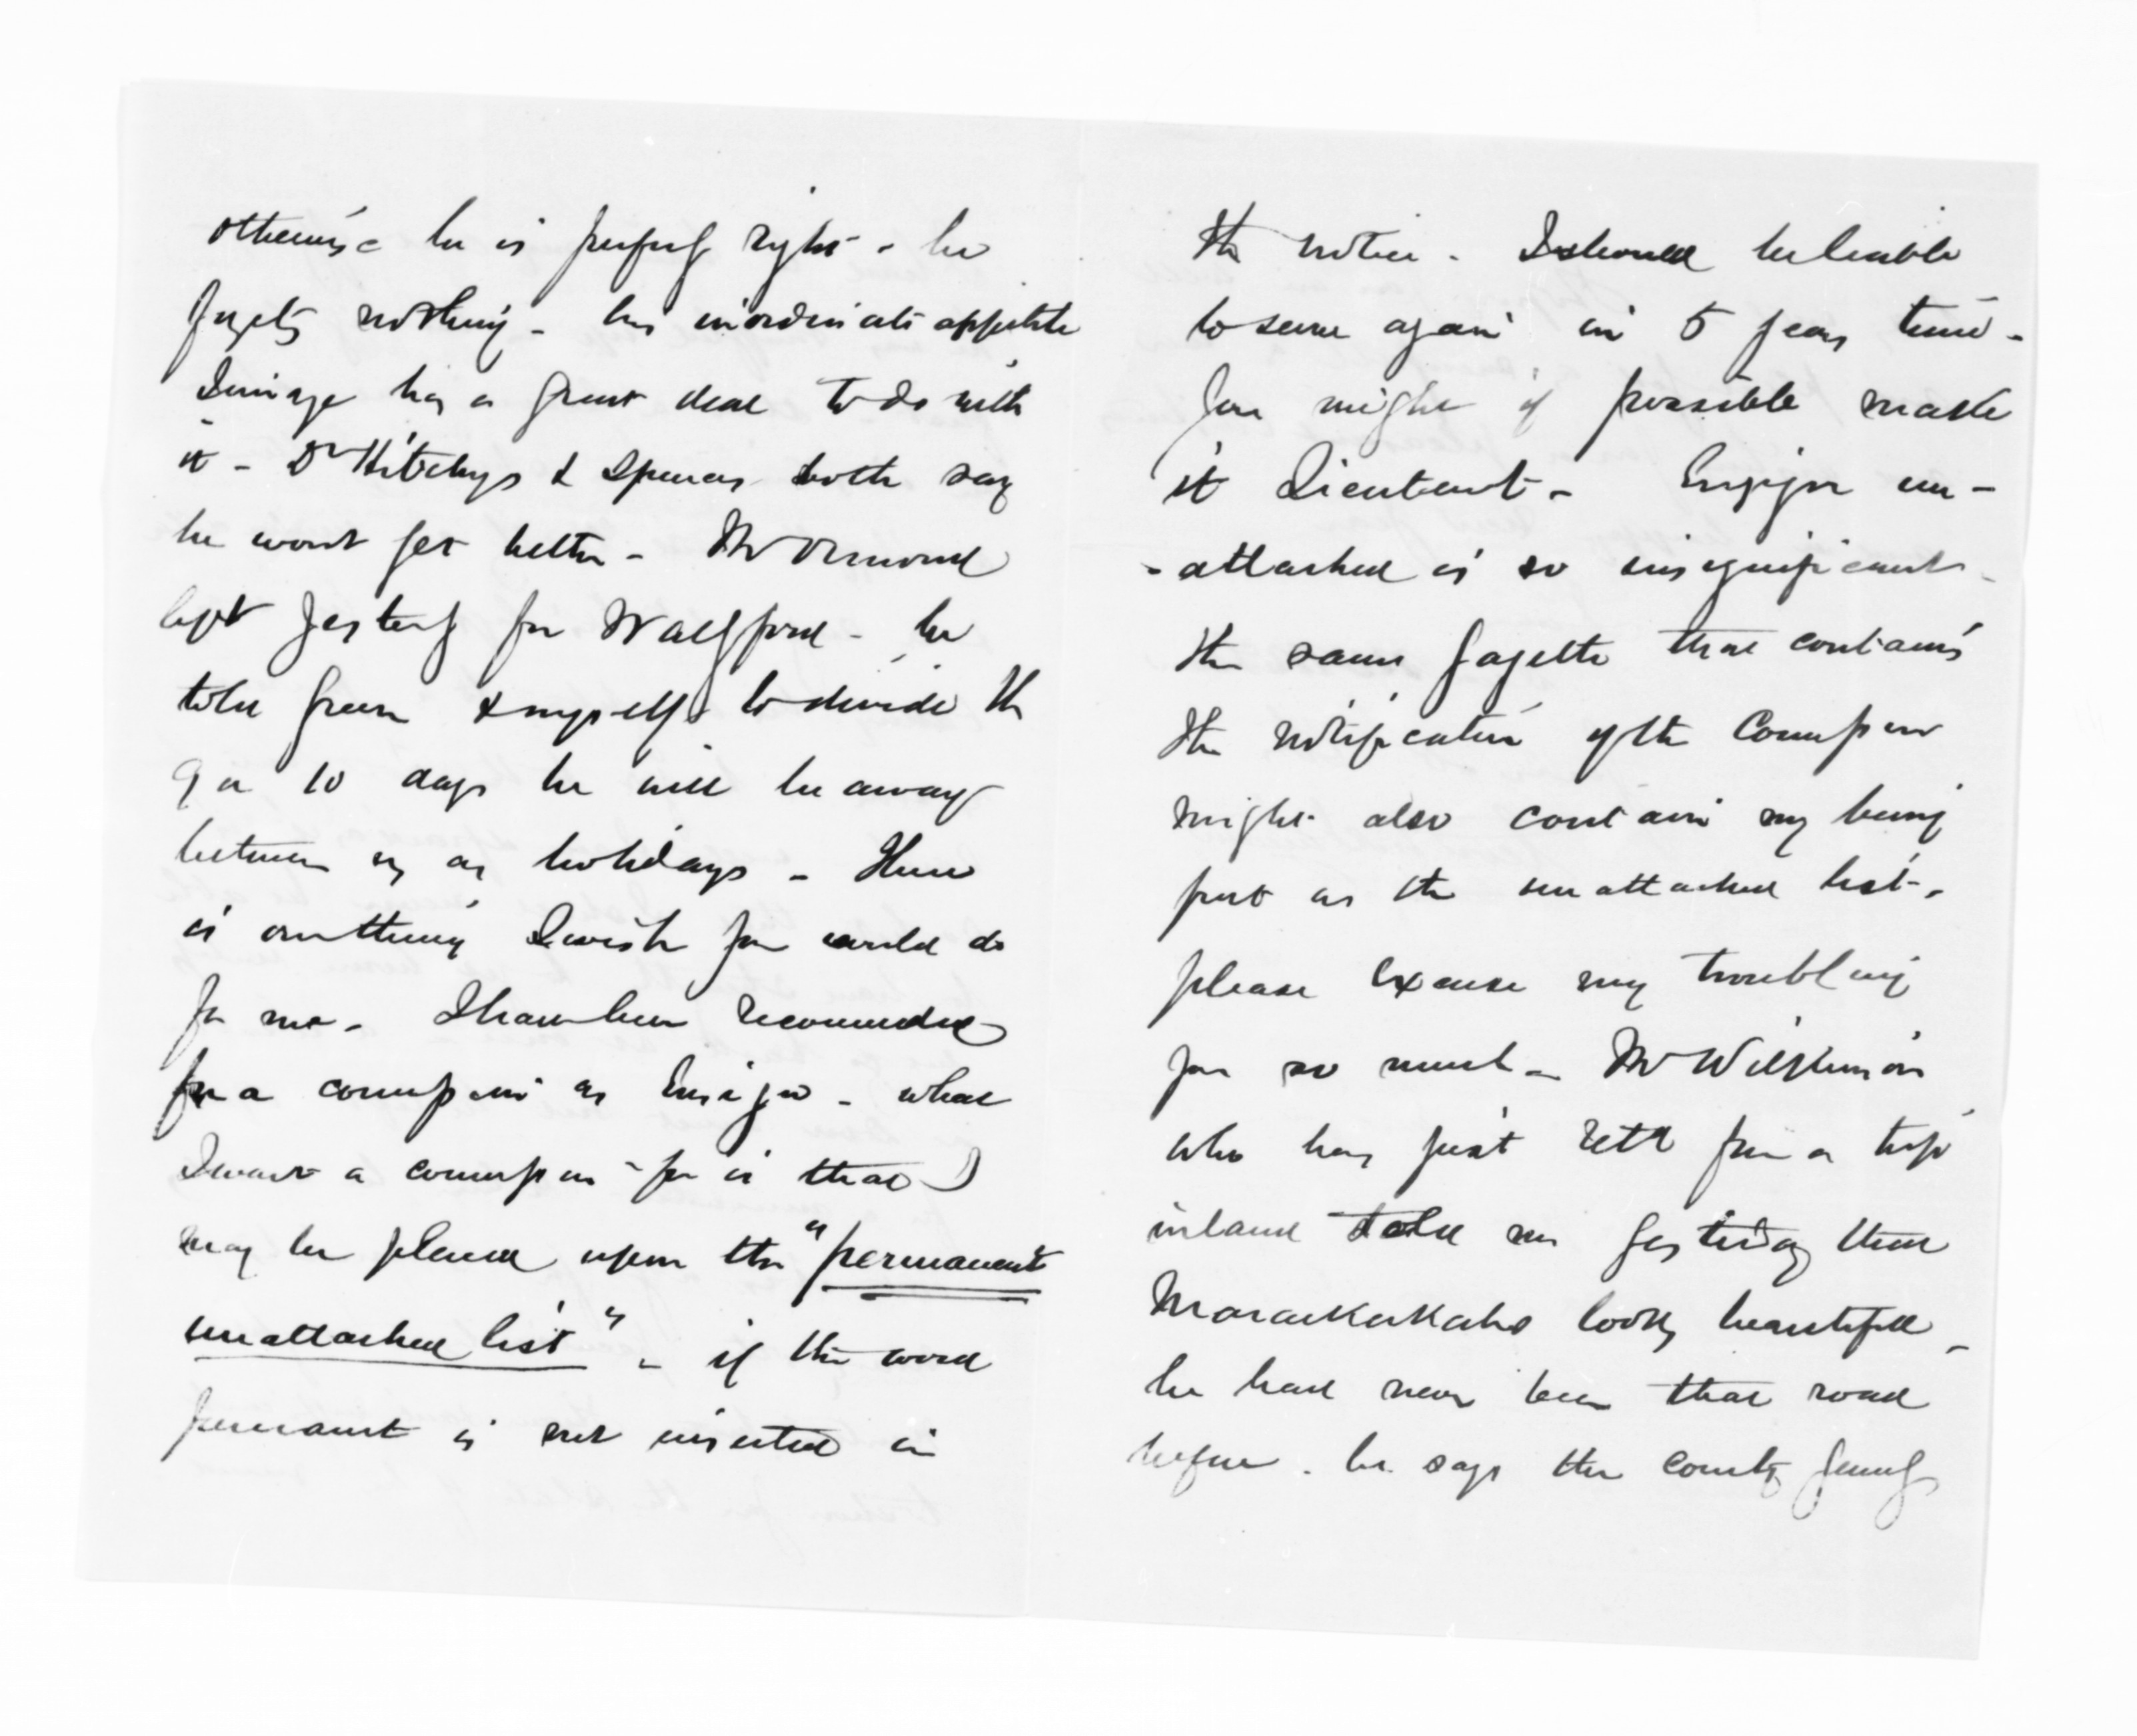 otherwise he is perfectly right - he
forgets nothing - his inordinate appetite
I imagine has a great deal to do with
it - Dr Hitchings & Spencer both say
he wont get better - Mr Ormond
left yesterday for Wallingford - he
told Green & myself to divide the
9 or 10 days he will be away
between us as holidays - There
is one thing I wish you would do
for me - I have been recommended
for a commission as Ensign - what
I want a commission for is that I
may be placed upon the "permanent
unattached list" - if the word
permanent is not inserted in
the notice - I should be liable
to serve again in 5 years time -
You might if possible make
it Lieutenant - Ensign un-
-attached is so insignificant -
the same gazette that contains
the notification of the Commission
might also contain my being
put on the unattached list -
please excuse my troubling
you so much - Mr Wilkinson
who has just retd from a trip
inland told me yesterday that
Maraekakaho looks beautiful -
he had never been that road
before - he says the country